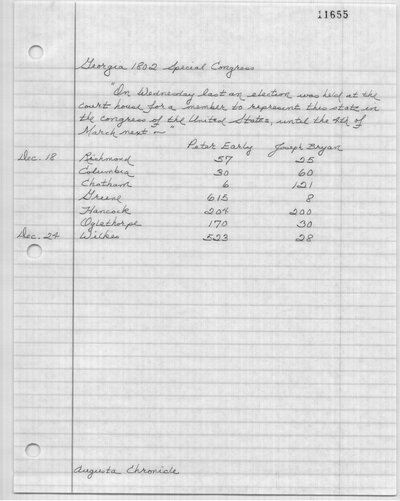 11655
Georgia 1802 Special Congress
"On Wednesday last an election was held at the
court house for a member to represent this state in
the congress of the United States, until the 4th of
March next — "
Peter Early Joseph Bryan
Dec. 18 Richmond 57 25
Columbia 30 60
Chatham 6 121
Greene 615 8
Hancock 204 200
Oglethorpe 170 30
Dec. 24 Wilkes 523 28
Augusta Chronicle